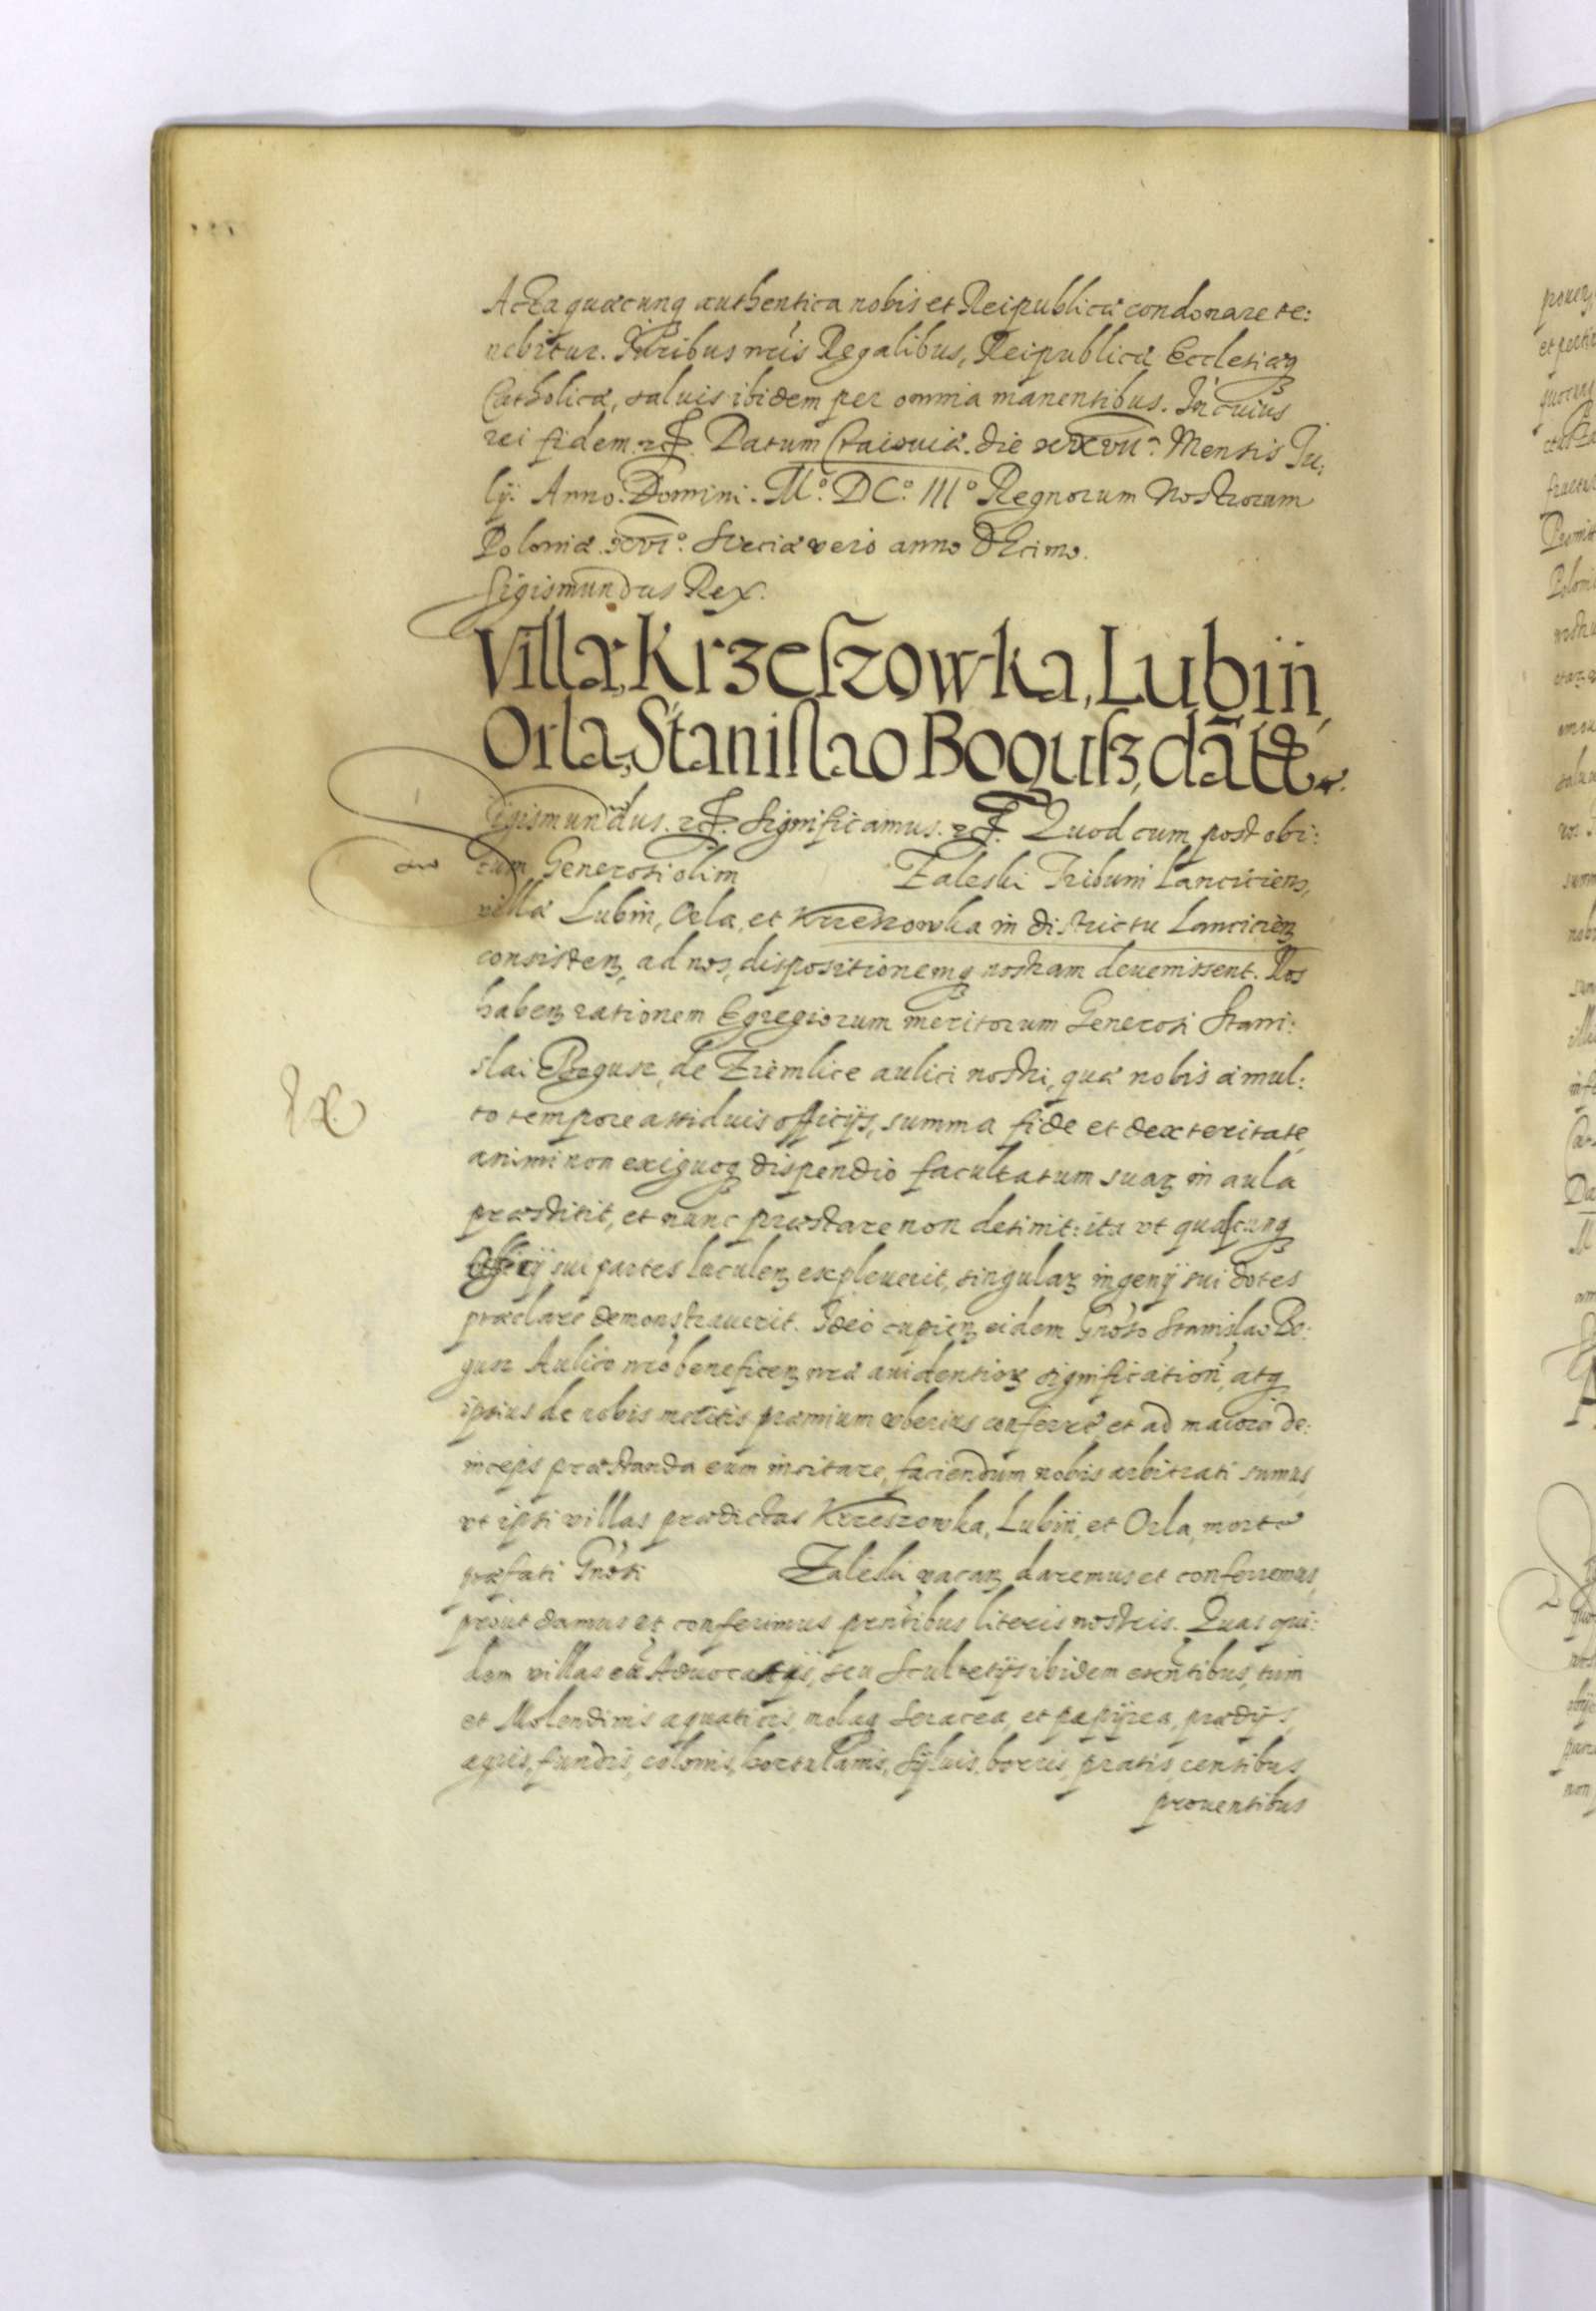 Acta quæcunq authentica nobis et Reipublicæ condonare te:
nebitur. Iuribus nr̃is Regalibus, Reipublicæ Ecclesiæq
Catholicæ, saluis ibidem per omnia manentibus. In cuius
rei fidem. etc. Datum Cracouiæ. die xxvii. Mensis Iu:
lij. Anno. Domini. Mº. DCº. IIIº Regnorum Nostrorum
Poloniæ xviº. Sueciæ vero anno decimo.
Sigismundus Rex.
Villæ, Krzeszowka, Lubiń,
Orla, Stanislao Bogusz, dãtr.
Sigismundus. etc. Significamus. etc. Quod cum post obi:
tum Generosi olim Zaleski Tribuni Lancicien,
villæ Lubiń, Orla, et Krzeszowka in districtu Lancicien
consisten, ad nos, dispositionemq nostram deuenissent. Nos
haben rationem Egregiorum meritorum Generosi Stani:
slai Bogusz, de Ziemlice aulici nostri, quæ nobis à mul:
to tempore assiduis officijs, summa fide et dexteritate
animi non exiguoq dispendio facultatum suar in aula
præstitit, et nunc præstare non desinit: ita vt quascunq
Officij sui partes luculen expleuerit, singular ingenij sui dotes
præclare demonstrauerit. Ideo cupien eidem Gnõso Stanislao Bo:
gusz Aulico nr̃o beneficen nr̃æ auidentior significationẽ, atq
ipsius de nobis meritis præmium vberius conferre, et ad maiora de:
inceps præstanda eum incitare, faciendum nobis arbitrati sumus,
vt ipsi villas prædictas Krzeszowka, Lubiń, et Orla, morte
præfati Gnõsi Zaleski vacan daremus et conferremus,
prout damus et conferimus prñtibus literis nostris. Quas qui:
dem villas cũ Aduocatijs, seu Scultetijs ibidem exñtibus, tum
et Molendinis aquaticis, molaq seracea, et papijrea, prædijs,
agris, fundis, colonis, hortulanis, sijluis, borris, pratis, censibus,
prouentibus